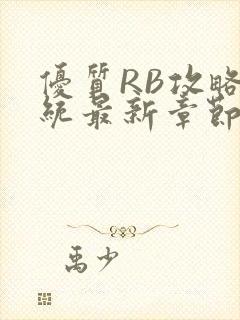 優質RB攻略
統最新章節
禹少